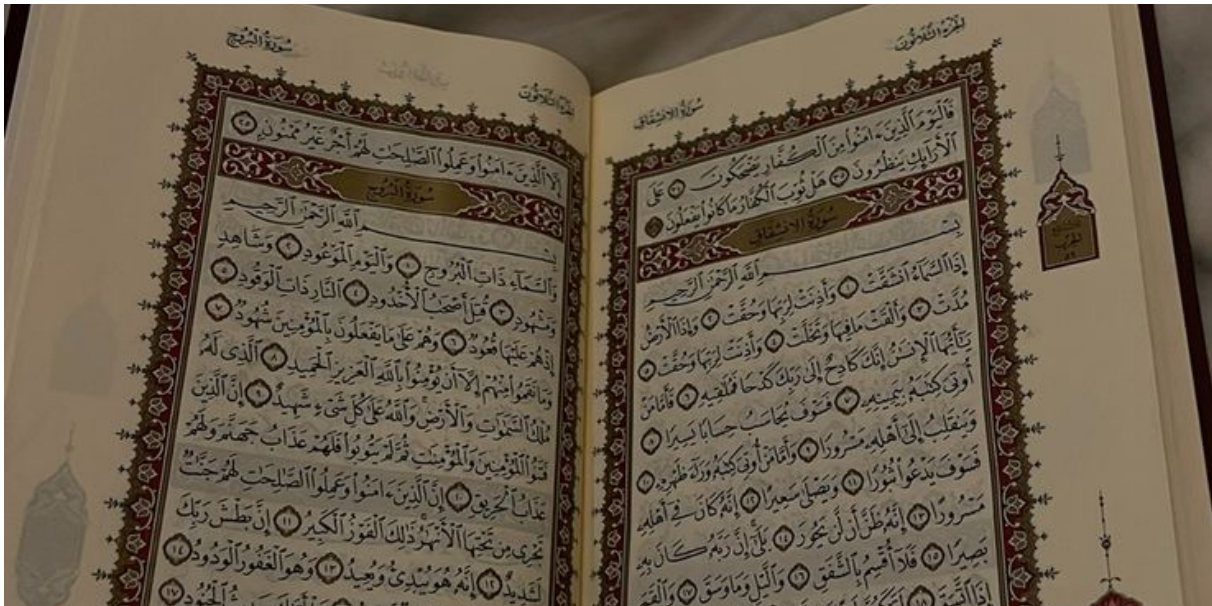 الجزء الثلاثون
سورة الانشقاق
فَٱلْيَوْمَ ٱلَّذِينَ ءَامَنُوا۟ مِنَ ٱلْكُفَّارِ يَضْحَكُونَ ٣٤ عَلَى
ٱلْأَرَآئِكِ يَنظُرُونَ ٣٥ هَلْ ثُوِّبَ ٱلْكُفَّارُ مَا كَانُوا۟ يَفْعَلُونَ ٣٦
سُورَةُ الانشِقَاقِ
بِسْمِ ٱللَّهِ ٱلرَّحْمَٰنِ ٱلرَّحِيمِ
إِذَا ٱلسَّمَآءُ ٱنشَقَّتْ ١ وَأَذِنَتْ لِرَبِّهَا وَحُقَّتْ ٢ وَإِذَا ٱلْأَرْضُ
مُدَّتْ ٣ وَأَلْقَتْ مَا فِيهَا وَتَخَلَّتْ ٤ وَأَذِنَتْ لِرَبِّهَا وَحُقَّتْ ٥
يَٰٓأَيُّهَا ٱلْإِنسَٰنُ إِنَّكَ كَادِحٌ إِلَىٰ رَبِّكَ كَدْحًا فَمُلَٰقِيهِ ٦ فَأَمَّا مَنْ
أُوتِىَ كِتَٰبَهُۥ بِيَمِينِهِۦ ٧ فَسَوْفَ يُحَاسَبُ حِسَابًا يَسِيرًا ٨
وَيَنقَلِبُ إِلَىٰٓ أَهْلِهِۦ مَسْرُورًا ٩ وَأَمَّا مَنْ أُوتِىَ كِتَٰبَهُۥ وَرَآءَ ظَهْرِهِۦ ١٠
فَسَوْفَ يَدْعُوا۟ ثُبُورًا ١١ وَيَصْلَىٰ سَعِيرًا ١٢ إِنَّهُۥ كَانَ فِىٓ أَهْلِهِۦ
مَسْرُورًا ١٣ إِنَّهُۥ ظَنَّ أَن لَّن يَحُورَ ١٤ بَلَىٰٓ إِنَّ رَبَّهُۥ كَانَ بِهِۦ
بَصِيرًا ١٥ فَلَآ أُقْسِمُ بِٱلشَّفَقِ ١٦ وَٱلَّيْلِ وَمَا وَسَقَ ١٧ وَٱلْقَمَرِ
إِذَا ٱتَّسَقَ ١٨
الحزب
٥٩
الجزء الثلاثون
سورة البروج
إِلَّا ٱلَّذِينَ ءَامَنُوا۟ وَعَمِلُوا۟ ٱلصَّٰلِحَٰتِ لَهُمْ أَجْرٌ غَيْرُ مَمْنُونٍۭ ٢٥
سُورَةُ البُرُوجِ
بِسْمِ ٱللَّهِ ٱلرَّحْمَٰنِ ٱلرَّحِيمِ
وَٱلسَّمَآءِ ذَاتِ ٱلْبُرُوجِ ١ وَٱلْيَوْمِ ٱلْمَوْعُودِ ٢ وَشَاهِدٍ
وَمَشْهُودٍ ٣ قُتِلَ أَصْحَٰبُ ٱلْأُخْدُودِ ٤ ٱلنَّارِ ذَاتِ ٱلْوَقُودِ ٥
إِذْ هُمْ عَلَيْهَا قُعُودٌ ٦ وَهُمْ عَلَىٰ مَا يَفْعَلُونَ بِٱلْمُؤْمِنِينَ شُهُودٌ ٧
وَمَا نَقَمُوا۟ مِنْهُمْ إِلَّآ أَن يُؤْمِنُوا۟ بِٱللَّهِ ٱلْعَزِيزِ ٱلْحَمِيدِ ٨ ٱلَّذِى لَهُۥ
مُلْكُ ٱلسَّمَٰوَٰتِ وَٱلْأَرْضِ وَٱللَّهُ عَلَىٰ كُلِّ شَىْءٍ شَهِيدٌ ٩ إِنَّ ٱلَّذِينَ
فَتَنُوا۟ ٱلْمُؤْمِنِينَ وَٱلْمُؤْمِنَٰتِ ثُمَّ لَمْ يَتُوبُوا۟ فَلَهُمْ عَذَابُ جَهَنَّمَ وَلَهُمْ
عَذَابُ ٱلْحَرِيقِ ١٠ إِنَّ ٱلَّذِينَ ءَامَنُوا۟ وَعَمِلُوا۟ ٱلصَّٰلِحَٰتِ لَهُمْ جَنَّٰتٌ
تَجْرِى مِن تَحْتِهَا ٱلْأَنْهَٰرُ ذَٰلِكَ ٱلْفَوْزُ ٱلْكَبِيرُ ١١ إِنَّ بَطْشَ رَبِّكَ
لَشَدِيدٌ ١٢ إِنَّهُۥ هُوَ يُبْدِئُ وَيُعِيدُ ١٣ وَهُوَ ٱلْغَفُورُ ٱلْوَدُودُ ١٤
ٱلْجُنُودِ ١٧